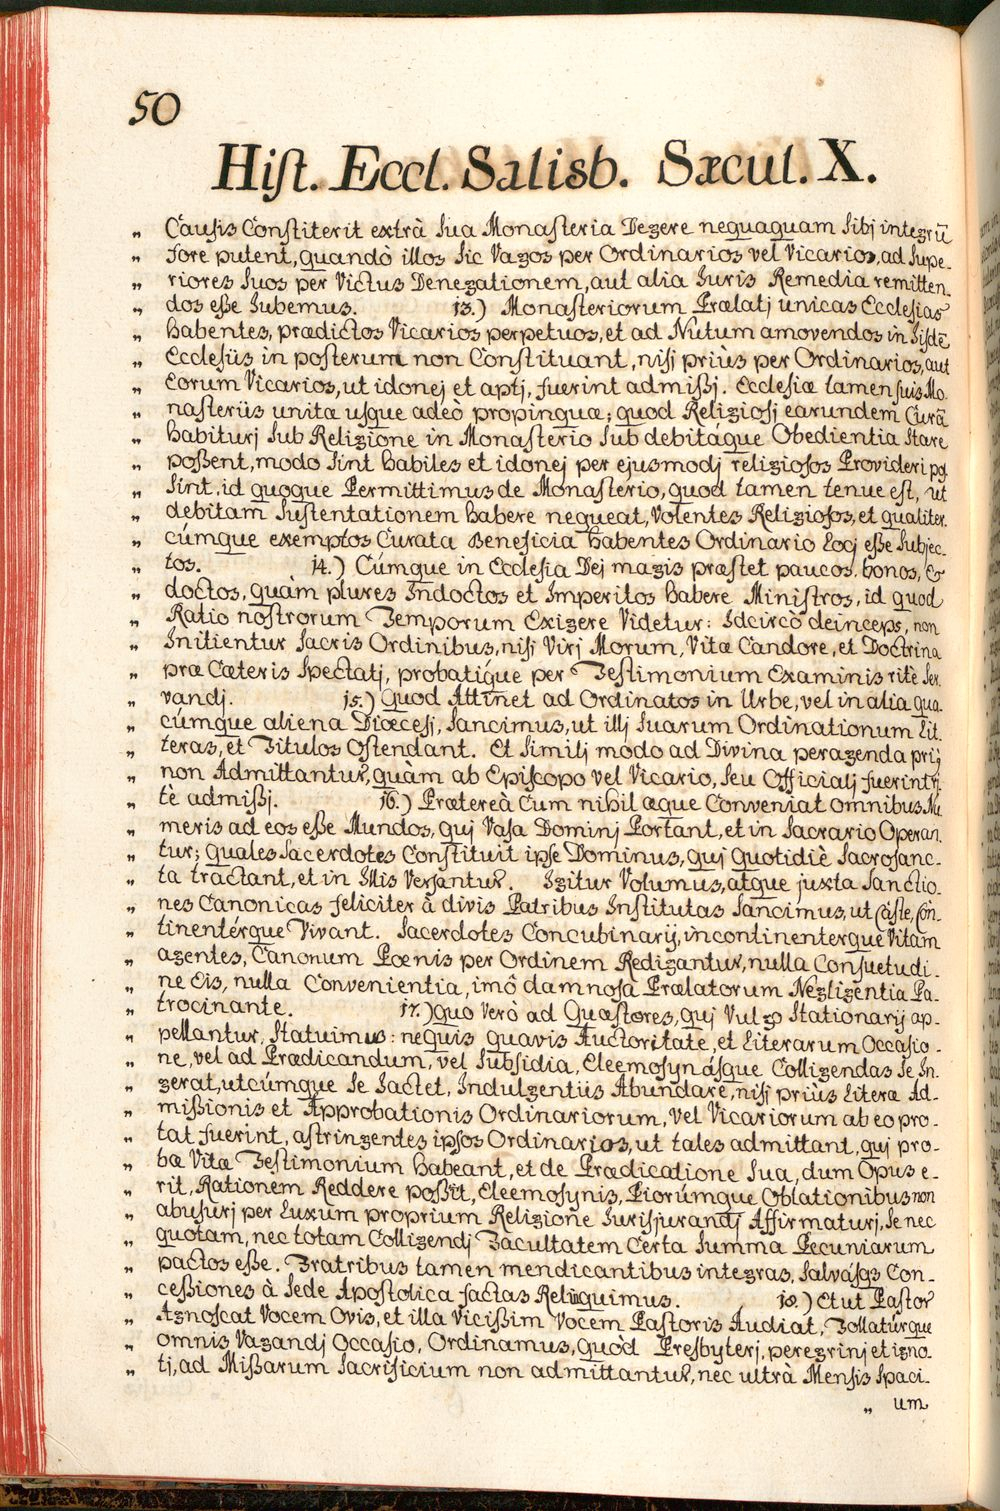 50
Hist. Eccl. Salisb. Sæcul. X.
„ Causis Constiterit extrà sua Monasteria Degere nequaquam sibj integrū
„ fore putent, quandò illos sic Vagos per Ordinarios vel Vicarios, ad supe-
„ riores suos per Victus Denegationem, aut alia Iuris Remedia remitten.
„ dos eße Iubemus. 13.) Monasteriorum Prælatj unicas Ecclesias
„ habentes, prædictos Vicarios perpetuos, et ad Nutum amovendos in Jisdē
„ Ecclesiis in posterum non Constituant, nisj priùs per Ordinarios, aut
„ Eorum Vicarios, ut idonej et aptj, fuerint admißj. Ecclesiæ tamen suis Mo-
„ nasteriis unitæ usque adeò propinquæ; quod Religiosj earundem Curā
„ habiturj sub Religione in Monasterio sub debitáque Obedientia stare
„ poßent, modo sint habiles et idonej per ejusmodj religiosos Provideri poſ
„ sint, id quoque Permittimus de Monasterio, quod tamen tenue est, ut
„ debitam sustentationem habere nequeat, Volentes Religiosos, et qualiter.
„ cúmque exemptos Curata Beneficia habentes Ordinario Locj eße subjec-
„ tos. 14.) Cúmque in Ecclesia Dej magis præstet paucos, bonos, &
„ doctos, quàm plures Indoctos et Imperitos habere Ministros, id quod
„ Ratio nostrorum Temporum Exigere Videtur: Idcircò deinceps, non
„ Initientur sacris Ordinibus, nisj Virj Morum, Vitæ Candore, et Doctrina
„ præ Cæteris spectatj, probatíque per Testimonium Examinis ritè ser.
„ vandj. 15.) Quod Attinet ad Ordinatos in Urbe, vel in alia qua.
„ cúmque aliena Diœcesj, sancimus, ut illj suarum Ordinationum Lit.
„ teras, et Titulos Ostendant. Et similj modo ad Divina peragenda priꝰ
„ non Admittantur, quàm ab Episcopo vel Vicario, seu Officialj fuerint ri-
„ tè admißj. 16.) Prætereà cum nihil æque Conveniat omnibus Nu
„ meris ad eos eße Mundos, quj Vasa Dominj Portant, et in sacrario Operan.
„ tur; quales sacerdotes Constituit ipse Dominus, quj quotidiè sacrosanc-
„ ta tractant, et in Illis Versantur. Igitur Volumus, atque juxta sanctio-
„ nes Canonicas feliciter à divis Patribus Institutas sancimus, ut Caste, Con-
„ tinentérque Vivant. sacerdotes Concubinarij, incontinenterque Vitam
„ agentes, Canonum Pœnis per Ordinem Redigantur, nulla Consuetudi-
„ ne Eis, nulla Convenientia, imò damnosa Prælatorum Negligentia Pa-
„ trocinante. 17.) Quo Verò ad Quæstores, quj Vulgò stationarij ap-
„ pellantur, statuimus: nequis quavis Auctoritate, et Literarum Occasio-
„ ne, vel ad Prædicandum, vel subsidia, Eleemosynásque Colligendas se In-
„ gerat, utcúmque se Iactet, Indulgentiis Abundare, nisj priùs Literæ Ad-
„ mißionis et Approbationis Ordinariorum, vel Vicariorum ab eo pro-
„ tat fuerint, astringentes ipsos Ordinarios, ut tales admittant, quj pro-
„ bæ Vitæ Testimonium habeant, et de Prædicatione sua, dum Opus e-
„ rit, Rationem Reddere poßit, Eleemosynis, Piorúmque Oblationibus non
„ abusurj per Luxum proprium Religione Iurisjurandj Affirmaturj, se nec
„ quotam, nec totam Colligendj Facultatem Certa summa Pecuniarum
„ pactos eße. Fratribus tamen mendicantibus integras, salvásqꝫ Con-
„ ceßiones à sede Apostolica factas Relinquimus. 18.) Et ut Pastor
„ Agnoscat Vocem Ovis, et illa Vicißim Vocem Pastoris Audiat, Tollatúrque
„ omnis Vagandj Occasio, Ordinamus, quòd Presbyterj, peregrinj et igno-
„ tj, ad Mißarum sacrificium non admittantur, nec ultrà Mensis spaci-
„ um